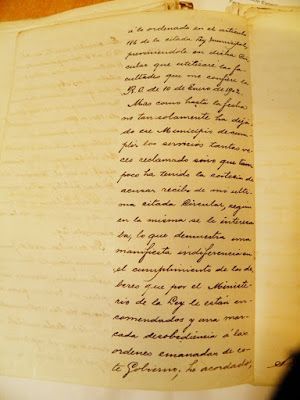 á lo ordenado en el artículo
186 de la citada Ley Municipal,
previniéndole en dicha Cir-
cular que utilizaré las fa-
cultades que me confiere la
R.O. de 10 de Enero de 1902.
Mas como hasta la fecha
no tan solamente ha deja-
do ese Municipio de cum-
plir los servicios tantas ve-
ces reclamado sino que tam-
poco ha tenido la cortesía de
acusar recibo de mi últi-
ma citada Circular, según
en la misma se le interesa-
ba, lo que demuestra una
manifiesta indiferencia en
el cumplimiento de los de-
beres que por el Ministe-
rio de la Ley le están en-
comendados y una mar-
cada desobediencia á las
ordenes emanadas de es-
te Gobierno, he acordado,